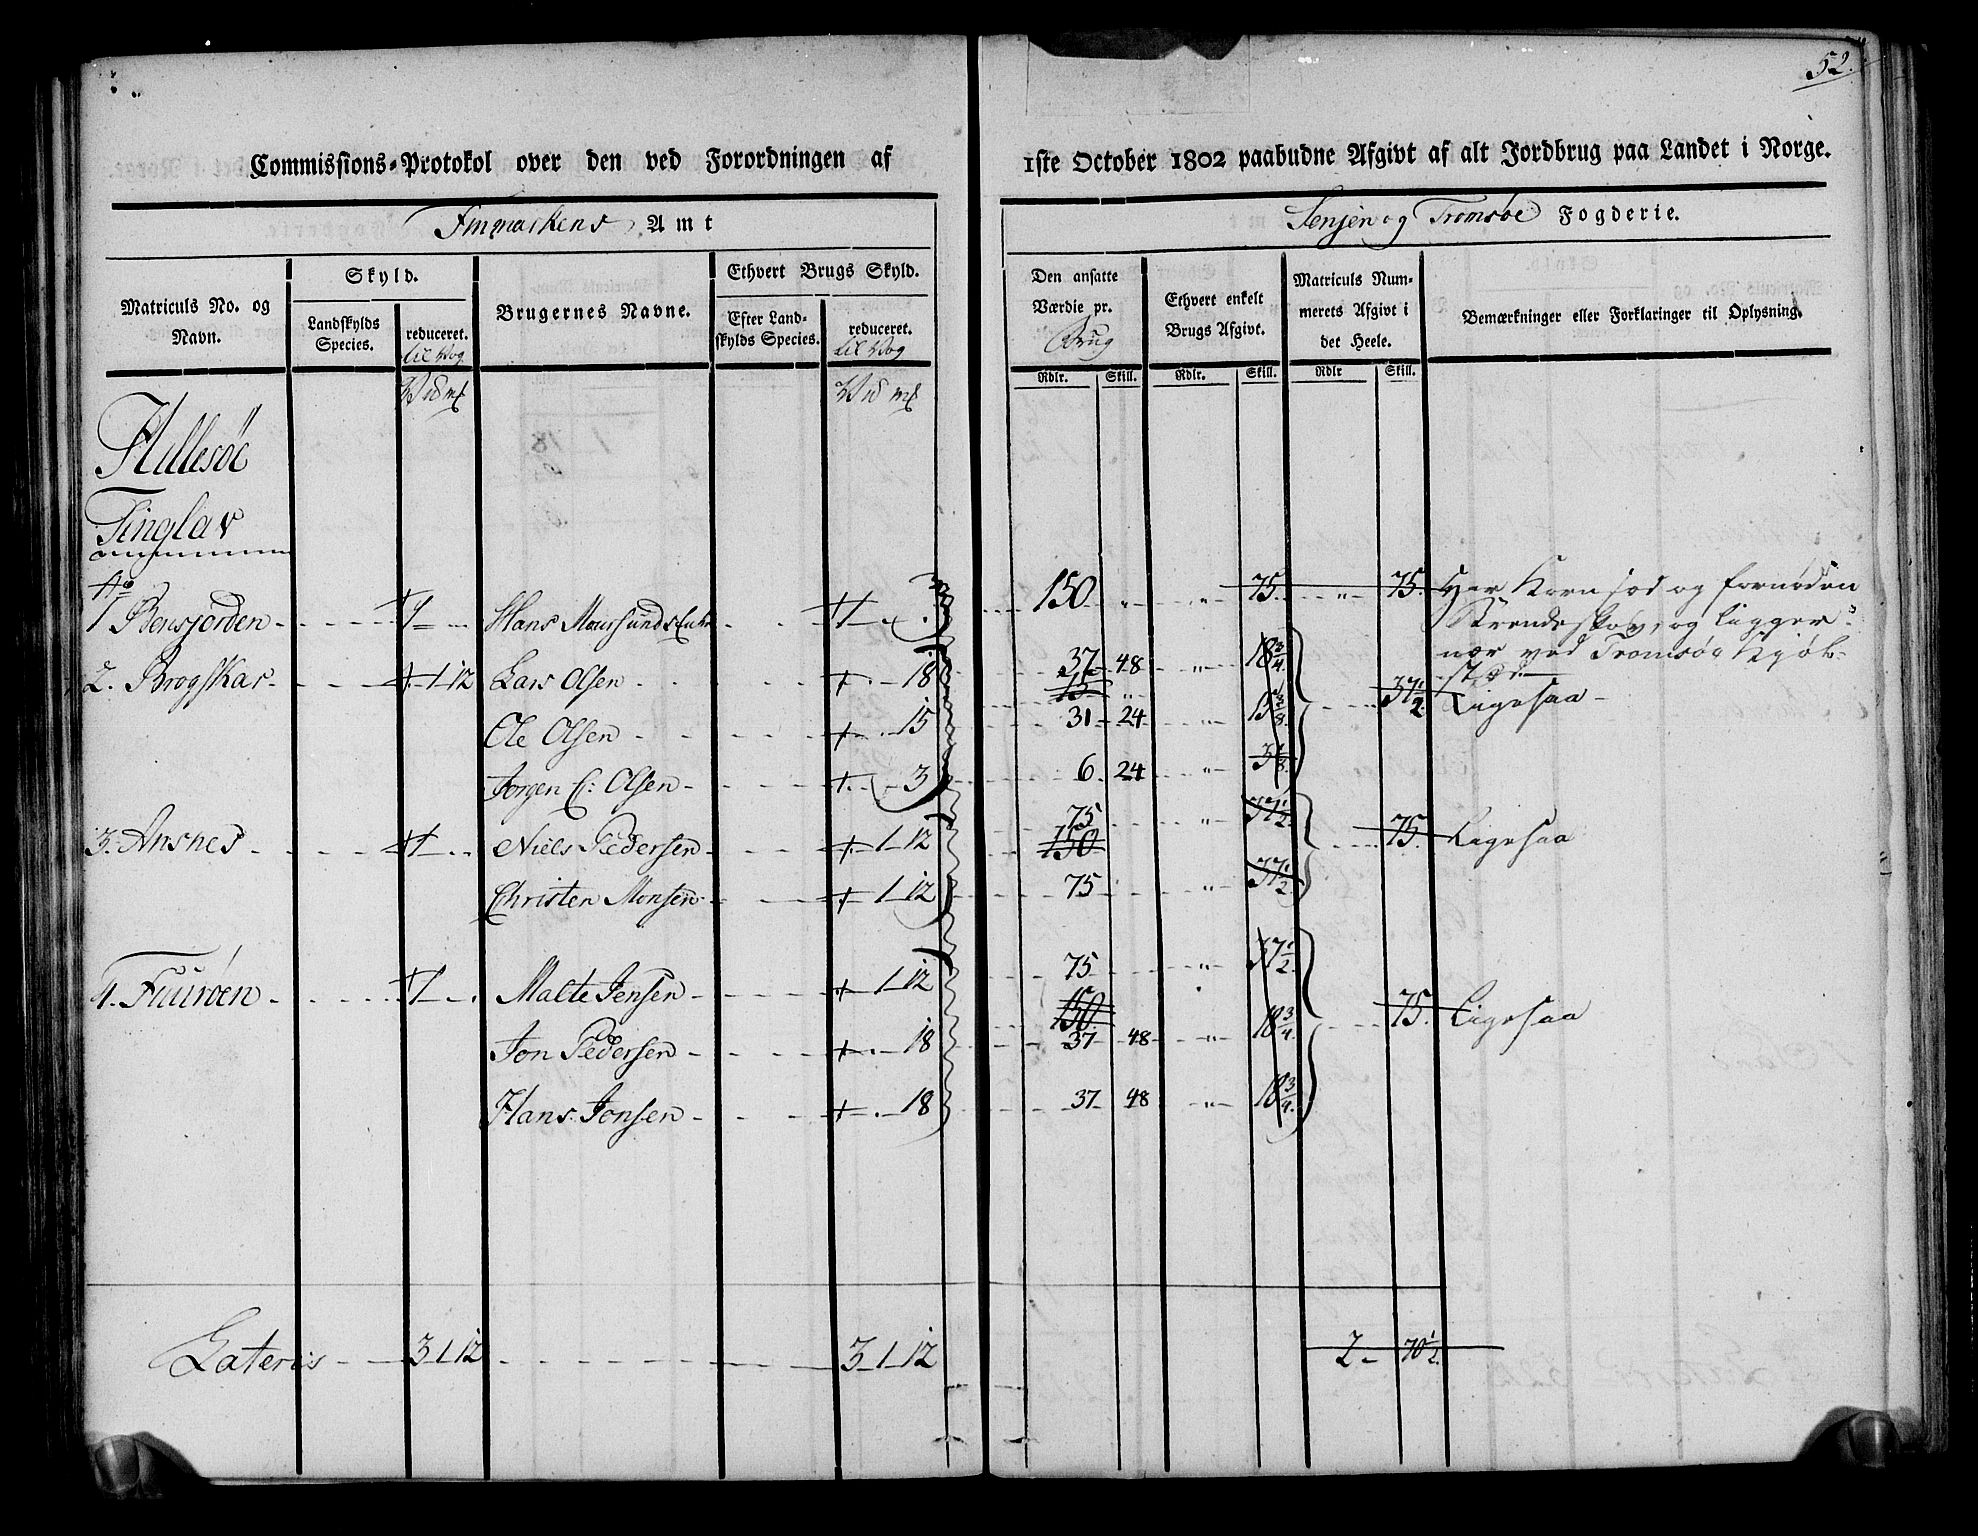 52.
Commissions-Protokol over den ved Forordningen af 1ste October 1802 paabudne Afgivt af alt Jordbrug paa Landet i Norge.
Finmarkens Amt
Senjen og Tromsøe Fogderie.
Matriculs No. og Navn.
Skyld.
Landskylds Species.
reduceret. til Vog
Brugernes Navne.
Ethvert Brugs Skyld.
Efter Landskylds Species.
reduceret. til Vog
Den ansatte Værdie pr. Brug
Ethvert enkelt Brugs Afgivt.
Matriculs Nummerets Afgivt i det Heele.
Bemærkninger eller Forklaringer til Oplysning.
Rdlr. Skill. Rdlr. Skill. Rdlr Skill.
Hillesøe
Tinglav
No
1 Bensjorden 1 Hans Maursunds Enke 1 150 " " 75. " 75. Har Kornsæd og fornøden
Strandeskov, og ligger
nær ved Tromsøe Kjøb-
stæd.
2. Brogskar 1 12 Lars Olsen 18 37 48 " 18 3/4 37 1/2 Ligesaa
75
Ole Olsen 15 31 24 " 15 5/8
Jørgen C: Olsen 3 6 24 " 3 1/8
3. Ansnes 1 Niels Pedersen 1 12 75 " 37 1/2 75. Ligesaa
150
Christen Monsen 1 12 75 " 37 1/2
4. Fuurøen 1 Malte Jensen 1 12 75 " 37 1/2 75. Ligesaa
150
Jon Pedersen 18 37 48 " 18 3/4
Hans Jonsen 18 37 48 " 18 3/4
Lateris 3 1 12 3 1 12 2 70 1/2